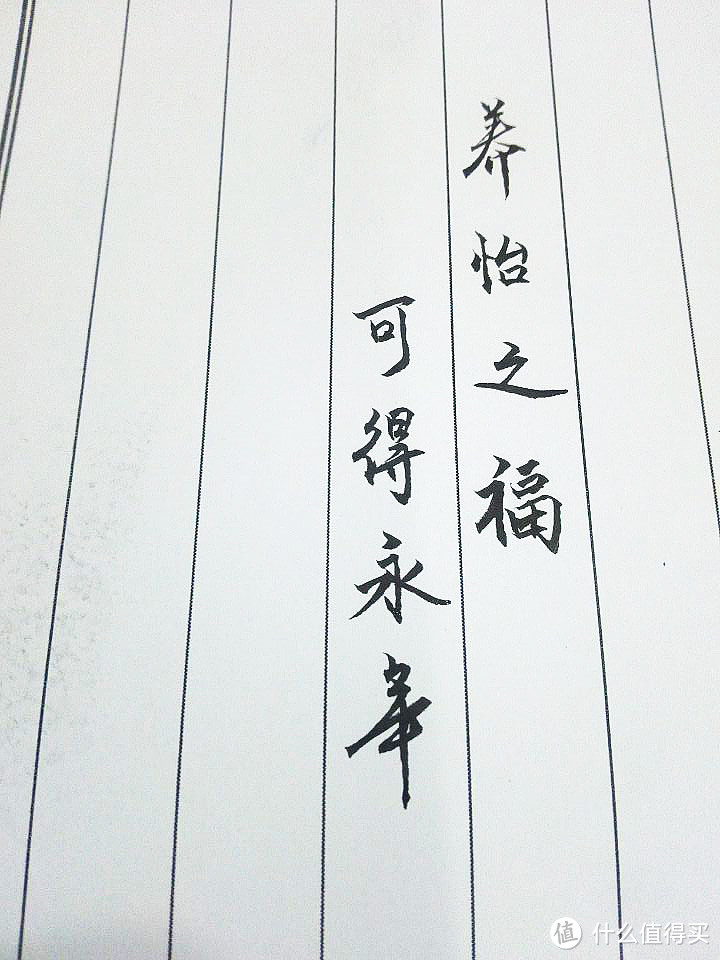 养怡之福
可得永年
值 什么值得买